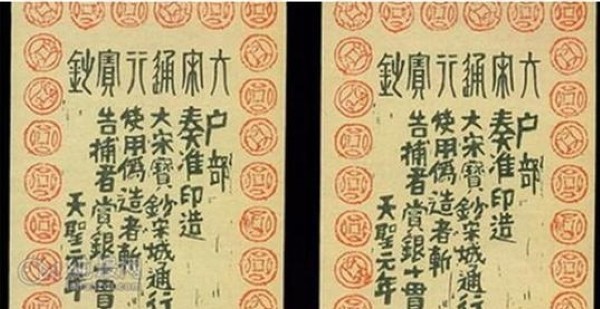 大宋通行寶鈔
户部
奏准印造
大宋寶鈔宋城通行
使用偽造者斬
告捕者賞銀十貫
天聖元年
大宋通行寶鈔
户部
奏准印造
大宋寶鈔宋城通行
使用偽造者斬
告捕者賞銀十貫
天聖元年